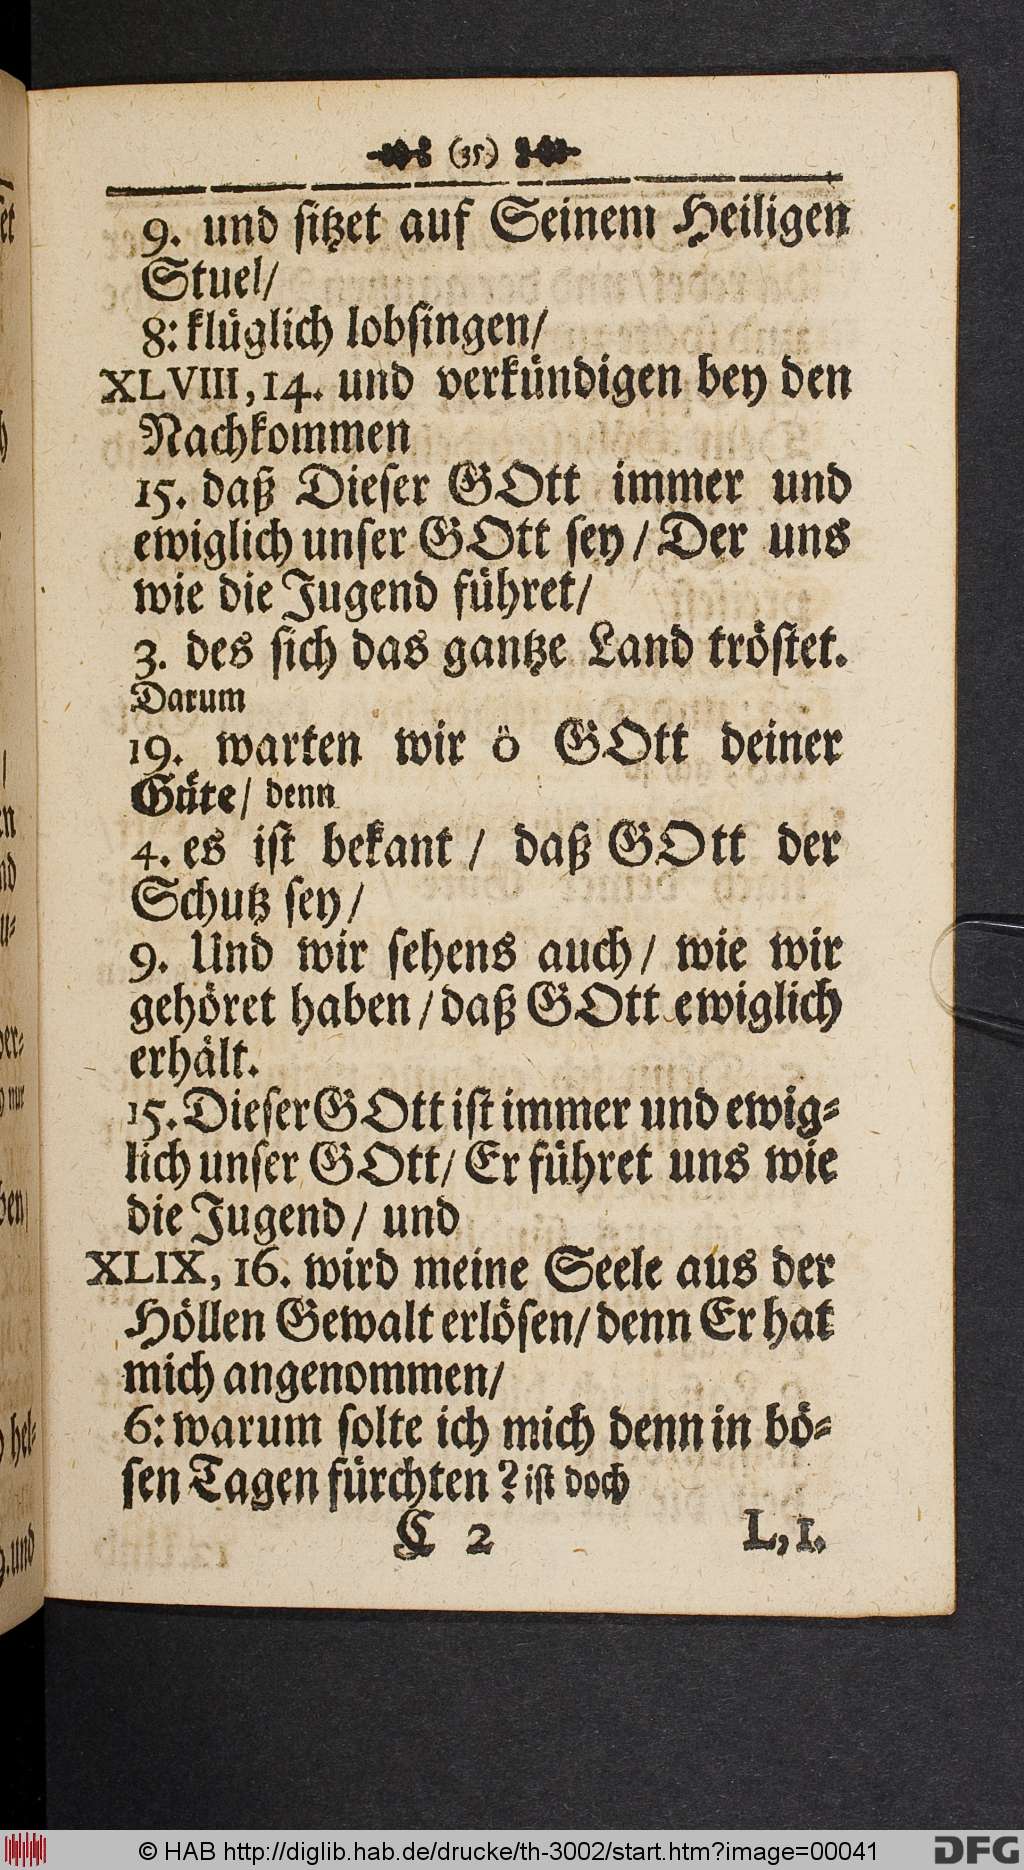 (35)
9. und sitzet auf Seinem Heiligen
Stuel/
8: klüglich lobsingen/
XLVIII, 14. und verkündigen bey den
Nachkommen
15. daß Dieser GOtt immer und
ewiglich unser GOtt sey / Der uns
wie die Jugend führet/
3. des sich das gantze Land tröstet.
Darum
19. warten wir ö GOtt deiner
Güte/ denn
4. es ist bekant / daß GOtt der
Schutz sey /
9. Und wir sehens auch / wie wir
gehöret haben / daß GOtt ewiglich
erhält.
15. Dieser GOtt ist immer und ewig-
lich unser GOtt/ Er führet uns wie
die Jugend / und
XLIX, 16. wird meine Seele aus der
Höllen Gewalt erlösen/ denn Er hat
mich angenommen/
6: warum solte ich mich denn in bö-
sen Tagen fürchten ? ist doch
C 2 L, 1.
© HAB http://diglib.hab.de/drucke/th-3002/start.htm?image=00041
DFG